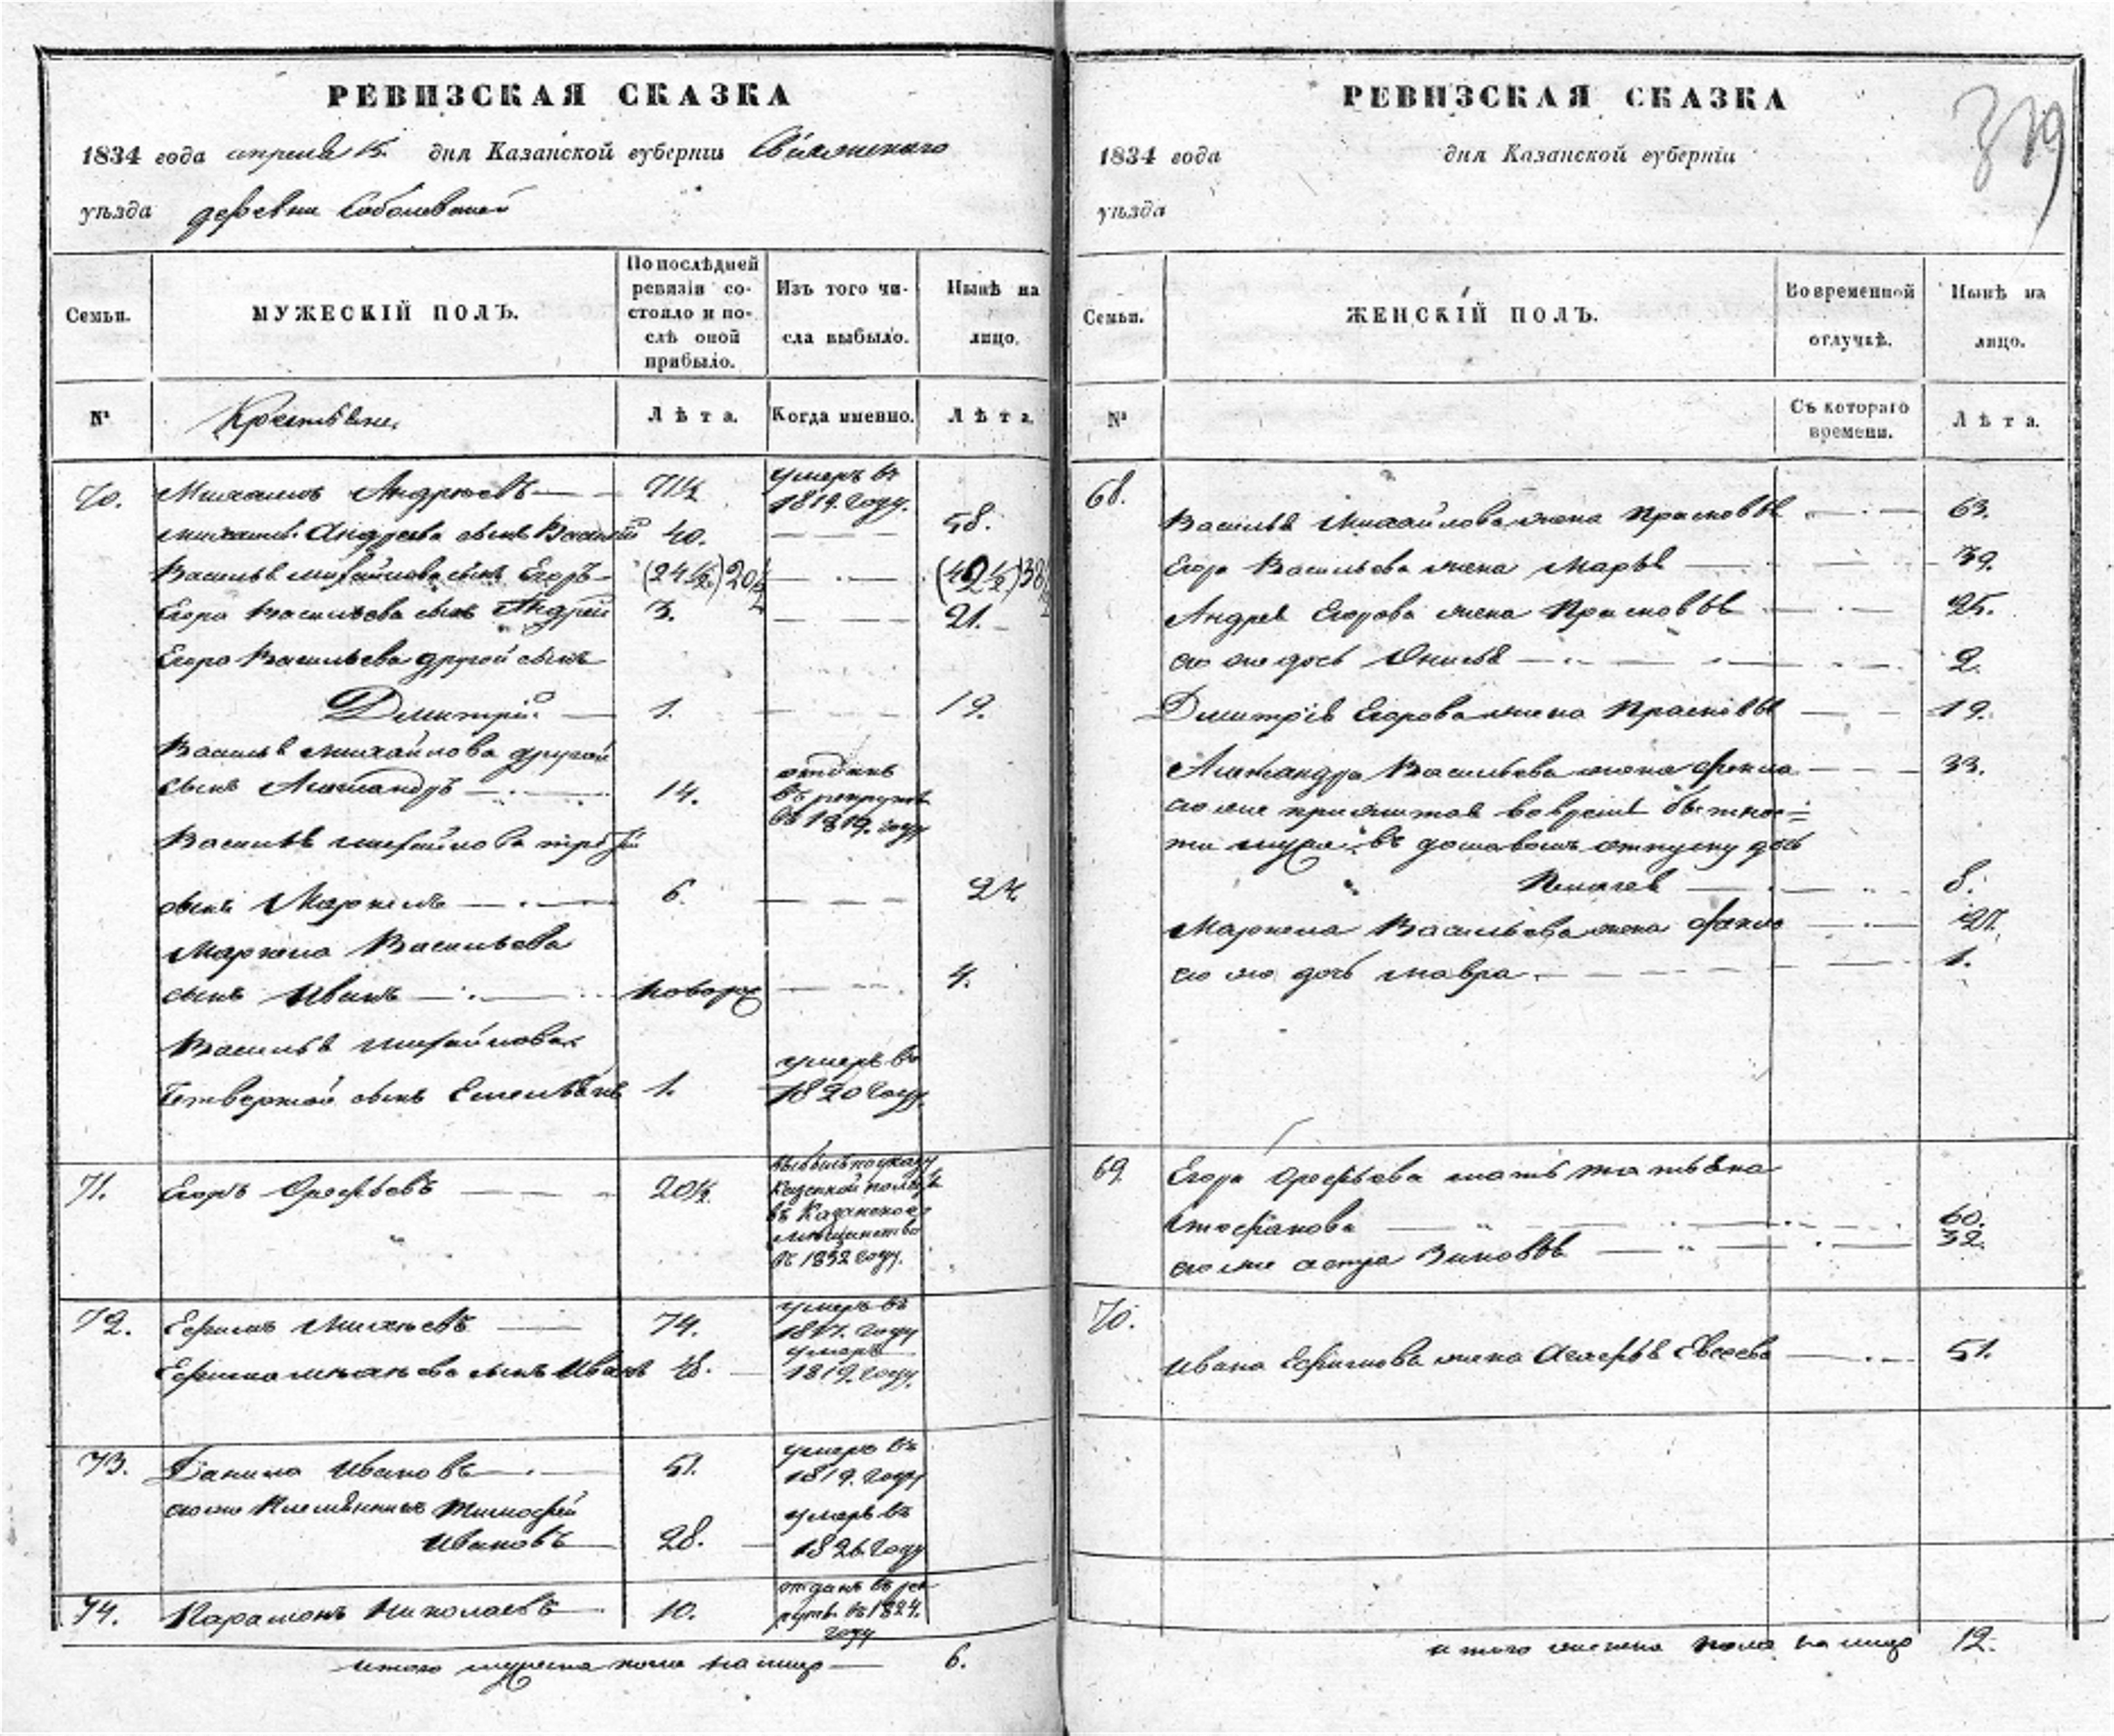 РЕВИЗСКАЯ СКАЗКА
1834 года апреля 15. дня Казанской губернiи Свiяжскаго
уѣзда деревни
Семьи.
МУЖЕСКІЙ ПОЛЪ.
По послѣдней ревизіи со-
стояло и по-
слѣ оной
прибыло.
Изъ того чи-
сла выбыло.
Нынѣ на
лицо.
№
Крестьяне.
Лѣта.
Когда именно.
Лѣта.
70. Михаилъ Андреевъ 71½ умеръ въ
1819. году.
Михаила Андреева сынъ Василий 40. 58.
Василья Михайлова сынъ Егоръ (24½) 20½ (42½) 38½
Егора Васильева сынъ Андрей 3. 21.
Егора Васильева другой сынъ
Дмитрiй. 1. 19.
Василья Михайлова другой
сынъ Александръ 14. отданъ
въ рекруты
въ 1819. году
Василья Михайлова третiй
сынъ Маркелъ 6. 24.
Маркела Васильева
сынъ Иванъ новорж 4.
Василья Михайлова
четвертой сынъ Емельянъ 1. умеръ въ
1820 году.
71. Егоръ Ерофѣевъ 20½. выбылъ по указу
Казенной палаты
въ Казанское
мѣщанство
въ 1832 году.
72. Ефимъ 74. умеръ въ
году
Ефима сынъ Иванъ 48. умеръ
1819. году.
73. Данила Ивановъ 51. умеръ въ
1819. году
его же племянникъ Тимофей
Ивановъ 28. умеръ въ
1826. году
74. Парамонъ Николаевъ 10. отданъ въ ре-
круты въ 1824.
году
итого мужеска пола на лицо 6.
РЕВИЗСКАЯ СКАЗКА
319
1834 года дня Казанской губернiи
уѣзда
Семьи.
ЖЕНСКІЙ ПОЛЪ.
Во временной
отлучкѣ.
Нынѣ на
лицо.
№
Съ котораго
времени.
Лѣта.
68.
Василья Михайлова жена Прасковья 63.
Егора Васильева жена Марья 39.
Андрея Егорова жена Прасковья 25.
его же дочь 2.
Дмитрiя Егорова жена Прасковья 19.
Александра Васильева жена Фекла 33.
ея же прижитая во время бытнос=
ти мужа въ домовомъ отпуску дочь
Пелагея 8.
Маркела Васильева жена Фекла 27.
его же дочь Мавра 1.
69. Егора Ерофѣева мать Татьяна
Стефанова 60.
его же сестра Зиновья 32.
70.
Ивана Ефимова жена Агафья Евсеева 51.
итого женска пола на лицо 12.